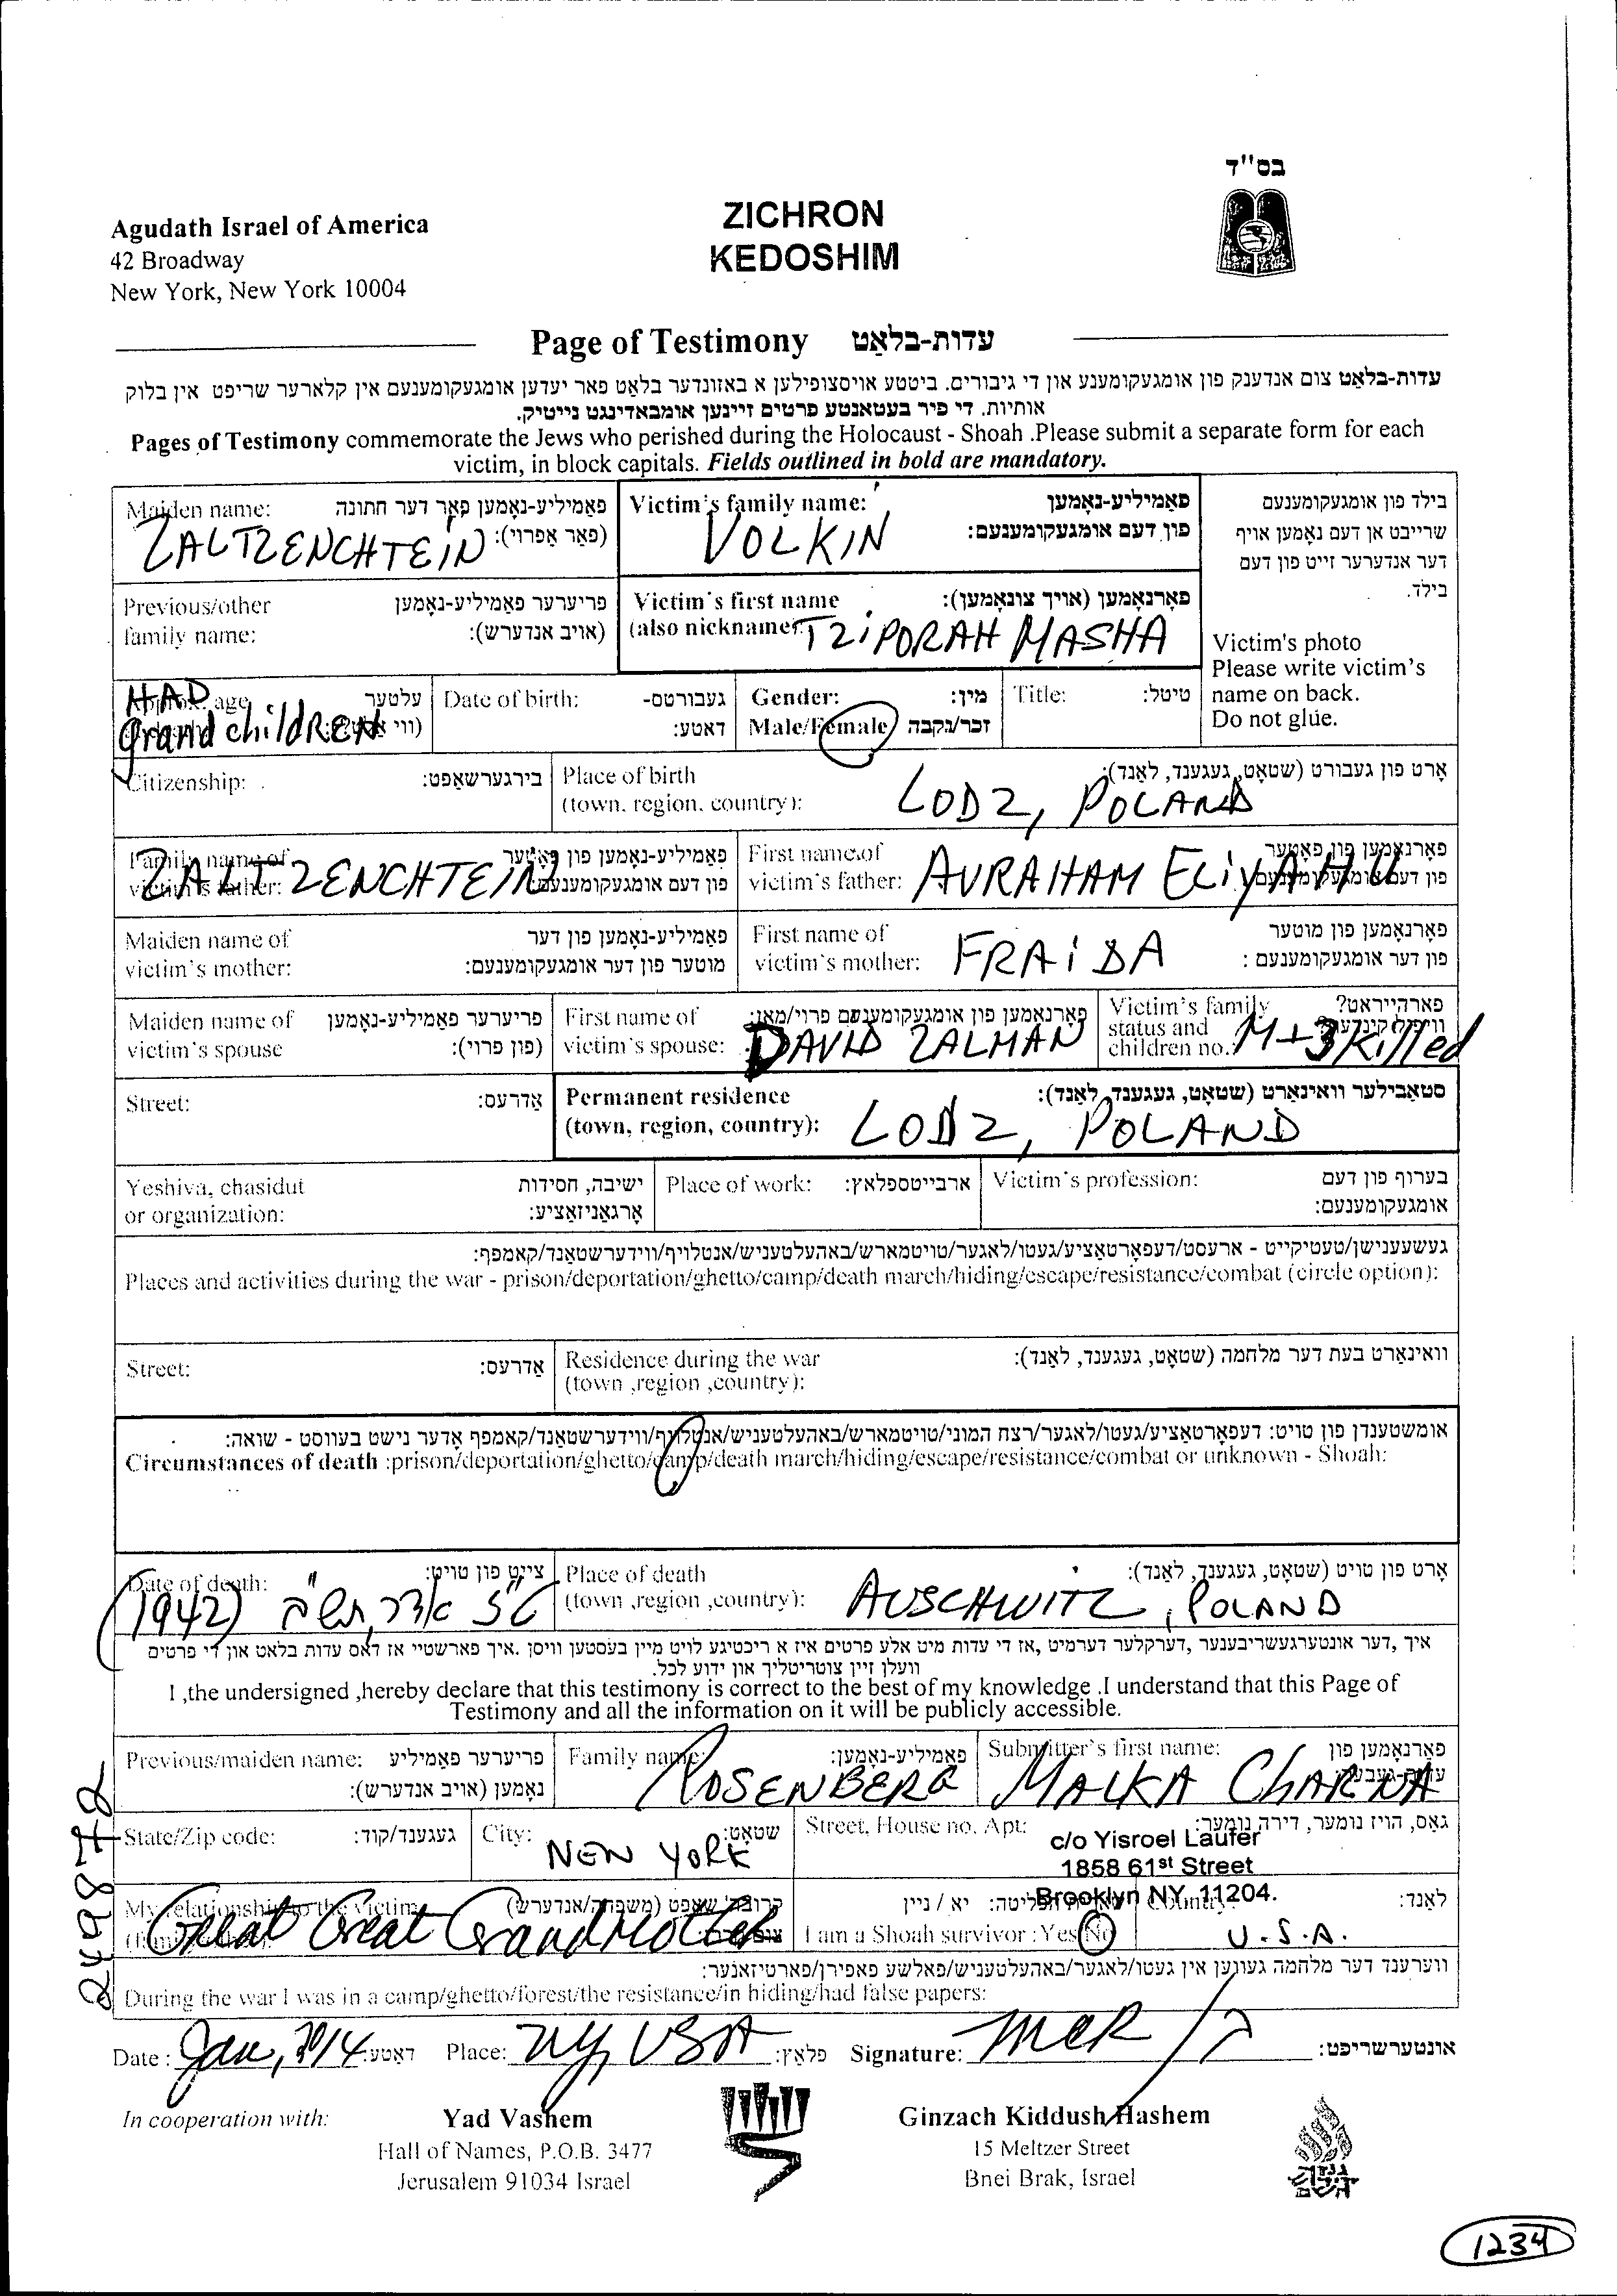 בס"ד
Agudath Israel of America
42 Broadway
New York, New York 10004
ZICHRON
KEDOSHIM
Page of Testimony עדות-בלאַט
עדות-בלאַט צום אנדענק פון אומגעקומענע און די גיבורים. ביטטע אויסצופילען א באזונדער בלאַט פאר יעדען אומגעקומענעם אין קלארער שריפט אין בלוק
אותיות. די פיר בעטאנטע פרטים זיינען אומבאדינגט נייטיק.
Pages of Testimony commemorate the Jews who perished during the Holocaust - Shoah .Please submit a separate form for each
victim, in block capitals. Fields outlined in bold are mandatory.
Maiden name: פאַמיליע-נאָמען פאַר דער חתונה
(פאַר אַפרוי):
ZALTZENCHTEIN
Victim's family name: פאַמיליע-נאָמען
פון דעם אומגעקומענעם:
VOLKIN
בילד פון אומגעקומענעם
שרייבט אן דעם נאָמען אויף
דער אנדערער זייט פון דעם
בילד.
Victim's photo
Please write victim's
name on back.
Do not glue.
Previous/other פריערער פאַמיליע-נאָמען
family name: (אויב אנדערש):
Victim's first name פאָרנאָמען (אויך צונאָמען):
(also nickname): TZIPORAH MASHA
HAD
grandchildREN
age עלטער
Date of birth: געבורטס-
דאַטע:
Gender: מין:
Male/Female זכר/נקבה
Title: טיטל:
Citizenship: בירגערשאַפט:
Place of birth אָרט פון געבורט (שטאָט, געגענד, לאַנד):
(town, region, country): LODZ, POLAND
Family name of פאַמיליע-נאָמען פון פאָטער
victim's father: פון דעם אומגעקומענעם:
ZALTZENCHTEIN
First name of פאָרנאָמען פון פאָטער
victim's father: AVRAHAM ELiYAHU
Maiden name of פאַמיליע-נאָמען פון דער
victim's mother: מוטער פון דער אומגעקומענעם:
First name of פאָרנאָמען פון מוטער
victim's mother: פון דער אומגעקומענעם :
FRAiDA
Maiden name of פריערער פאַמיליע-נאָמען
victim's spouse (פון פרוי):
First name of פאָרנאָמען פון אומגעקומענעם פרוי/מאַן:
victim's spouse: DAVID ZALMAN
Victim's family פארהייראט?
status and
children no. M+3 Killed
Street: אַדרעס:
Permanent residence סטאַבילער וואוינאָרט (שטאָט, געגענד, לאַנד):
(town, region, country): LODZ, POLAND
Yeshiva, chasidut ישיבה, חסידות
or organization: אָרגאַניזאַציע:
Place of work: ארבייטספלאץ:
Victim's profession: בערוף פון דעם
אומגעקומענעם:
געשעענישן/טעטיקייט - ארעסט/דעפאָרטאַציע/געטו/לאַגער/טויטמארש/באהעלטעניש/אנטלויף/ווידערשטאַנד/קאמפף:
Places and activities during the war - prison/deportation/ghetto/camp/death march/hiding/escape/resistance/combat (circle option):
Street: אַדרעס:
Residence during the war וואוינאָרט בעת דער מלחמה (שטאָט, געגענד, לאַנד):
(town ,region ,country):
אומשטענדן פון טויט: דעפאָרטאַציע/געטו/לאַגער/רצח המוני/טויטמארש/באהעלטעניש/אנטלויף/ווידערשטאַנד/קאמפף אָדער נישט בעוווסט - שואה:
Circumstances of death :prison/deportation/ghetto/camp/death march/hiding/escape/resistance/combat or unknown - Shoah:
Date of death: צייט פון טויט:
(1942)
Place of death אָרט פון טויט (שטאָט, געגענד, לאַנד):
(town ,region ,country): AUSCHWITZ, POLAND
איך ,דער אונטערגעשריבענער ,דערקלער דערמיט ,אז די עדות מיט אלע פרטים איז א ריכטיגע לויט מיין בעסטען וויסן .איך פארשטיי אז דאס עדות בלאט און די פרטים
וועלן זיין צוטריטליך און ידוע לכל.
I ,the undersigned ,hereby declare that this testimony is correct to the best of my knowledge .I understand that this Page of
Testimony and all the information on it will be publicly accessible.
Previous/maiden name: פריערער פאַמיליע
נאָמען (אויב אנדערש):
Family name: פאַמיליע-נאָמען:
ROSENBERG
Submitter's first name: פאָרנאָמען פון
MALKA CHARNA
State/Zip code: געגענד/קוד:
City: שטאָט:
NEW YORK
Street, House no. Apt: גאַס, הויז נומער, דירה נומער:
c/o Yisroel Laufer
1858 61st Street
Brooklyn NY, 11204.
My relationship to the victim
Great Great GrandMother
יא / ניין
I am a Shoah survivor : Yes/No
לאַנד:
U.S.A.
ווערענד דער מלחמה געווען אין געטו/לאַגער/באהעלטעניש/פאלשע פאפירן/פארטיזאנער:
During the war I was in a camp/ghetto/forest/the resistance/in hiding/had false papers:
Date : Jan, 2014 דאַטע: Place: NY, USA פלאַץ: Signature: MCR אונטערשריפט:
In cooperation with:
Yad Vashem
Hall of Names, P.O.B. 3477
Jerusalem 91034 Israel
Ginzach Kiddush Hashem
15 Meltzer Street
Bnei Brak, Israel
1234